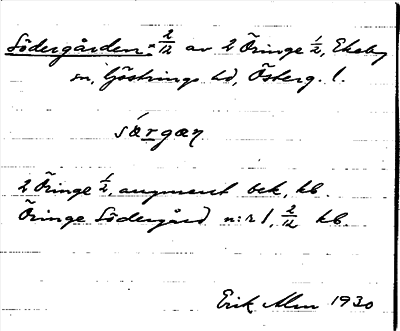 Södergården = 2/12 av 2 Öringe 1/2, Ekeby
sn, Göstrings hd, Österg. l.
sǽrgæn
2 Öringe 1/2, augment bek, kb.
Öringe Södergård n:r 1, 2/12 kb.
Erik Alm 1930